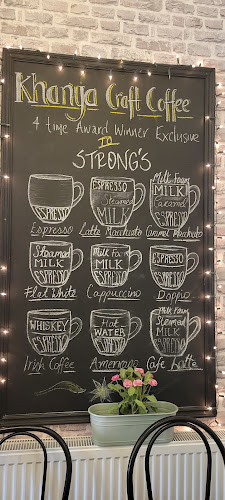 Khanya Craft Coffee
4 time Award Winner Exclusive
TO
STRONG'S
ESPRESSO
Espresso
ESPRESSO
Steamed
MILK
Latte Macchiato
Milk Foam
MILK
Caramel
ESPRESSO
Caramel Macchiato
Steamed
MILK
ESPRESSO
Flat White
Milk Foam
MILK
ESPRESSO
Cappuccino
ESPRESSO
ESPRESSO
Doppio
WHISKEY
ESPRESSO
Irish Coffee
Hot
WATER
ESPRESSO
Americano
Milk Foam
Steamed
MILK
ESPRESSO
Cafe Latte